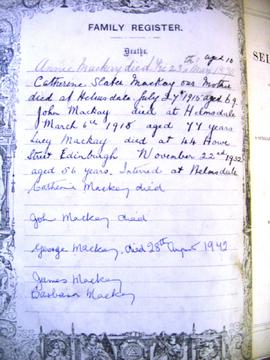 FAMILY REGISTER.
Deaths.
Annie Mackay died the 23rd May aged 10
Catherene Slater Mackay our Mother
died at Helmsdale July 27th 1915 aged 69
John Mackay died at Helmsdale
March 6th 1918 aged 77 years
Lucy Mackay died at 44 Howe
Street Edinburgh November 22nd 1932
aged 56 years. Interred at Helmsdale
Catherine Mackay died
John Mackay died
George Mackay, died 28th August 1942
James Mackay
Barbara Mackay
SEL